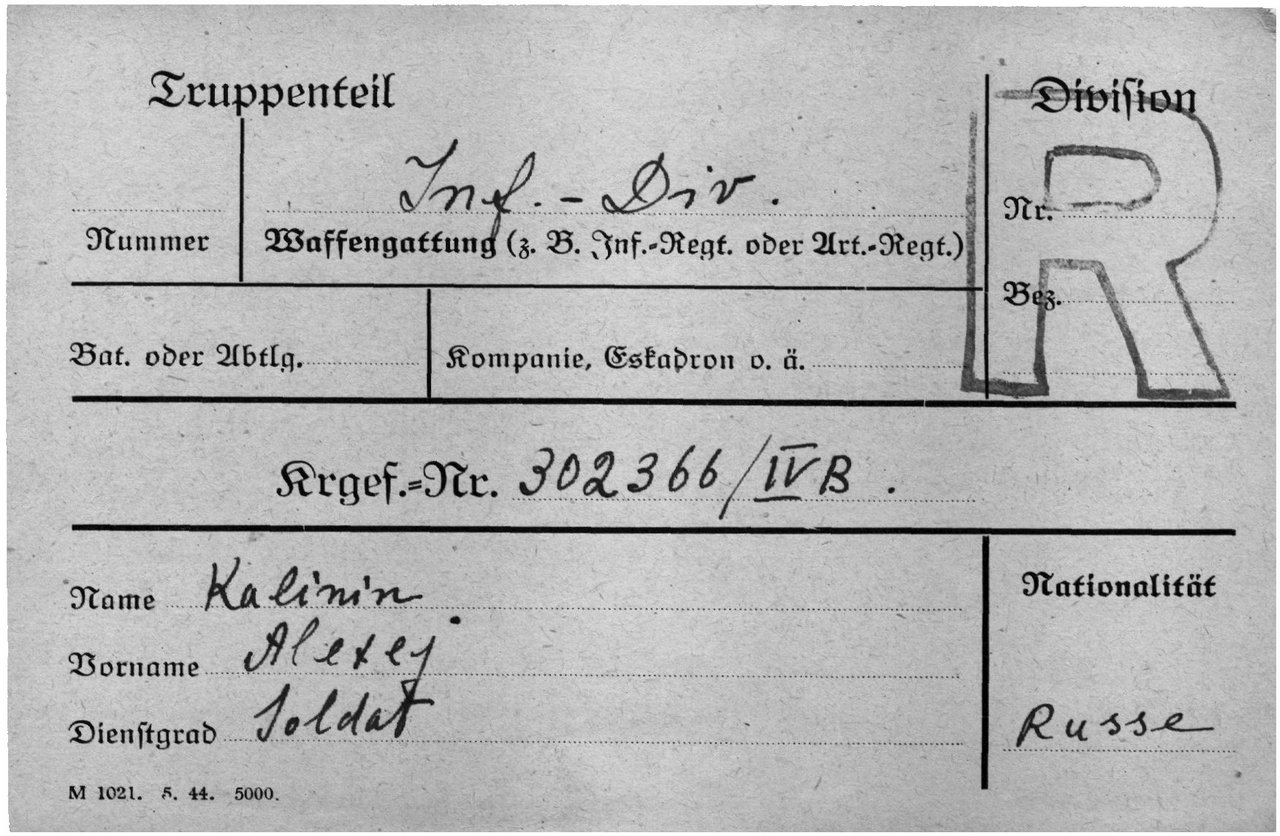 Truppenteil
Division
R
Inf.-Div.
Nr.
Nummer
Waffengattung (z. B. Inf.-Regt. oder Art.-Regt.)
Bez.
Bat. oder Abtlg.
Kompanie, Eskadron o. ä.
Krgef.-Nr. 302366/IVB.
Name Kalinin
Nationalität
Vorname Alexej
Dienstgrad Soldat
Russe
M 1021. 5. 44. 5000.